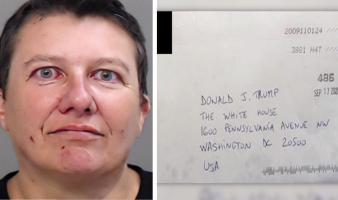 2009110124
3981 H4T
486
SEP 11 202
DONALD J. TRUMP
THE WHITE HOUSE
1600 PENNSYLVANIA AVENUE NW
WASHINGTON DC 20500
USA